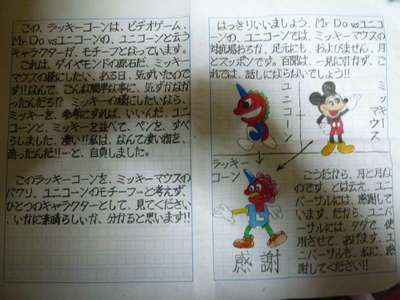 この、ラッキーコーンは、ビデオゲーム、
Mr Do vsユニコーンの、ユニコーンと云う
キャラクターが、モチーフとなっています。
これは、ダイヤモンドの原石だ、ミッキー
マウスの様にしたい、ある日、気ずいたので
す!!なんで、こんな簡単な事に、気ずかなか
ったんだろう?ミッキーの様にしたいなら、
ミッキーを、参考にすれば、いいんだ、ユニ
コーンと、ミッキーを並べて、ペンを、すべ
らしました、凄い!!私は、なんて凄い物を、
造ったんだ!!ーと、自負しました。
このラッキーコーンを、ミッキーマウスの
パクリ、ユニコーンのモチーフーと考えず、
ひとつのキャラクターとして、見てください、
いかに素晴らしいか、分かると思います!!
はっきりいいましょう、Mr Do vsユニコ
ーンの、ユニコーンでは、ミッキーマウスの
対抗馬おろか、足元にも、およびません、月
とスッポンです。百聞は、一見に引かず、こ
れでは、話しにならないでしょう!!
ユニコーン
ミッキーマウス
ラッキー
コーン
こうだから、月と月な
のです、とは云え、ユニ
バーサルには、感謝して
います、だから、ユニバ
ーサルには、タダで、使
用させて、あげます、ユ
ニバーサルも、私に、感
謝してください!!
感謝